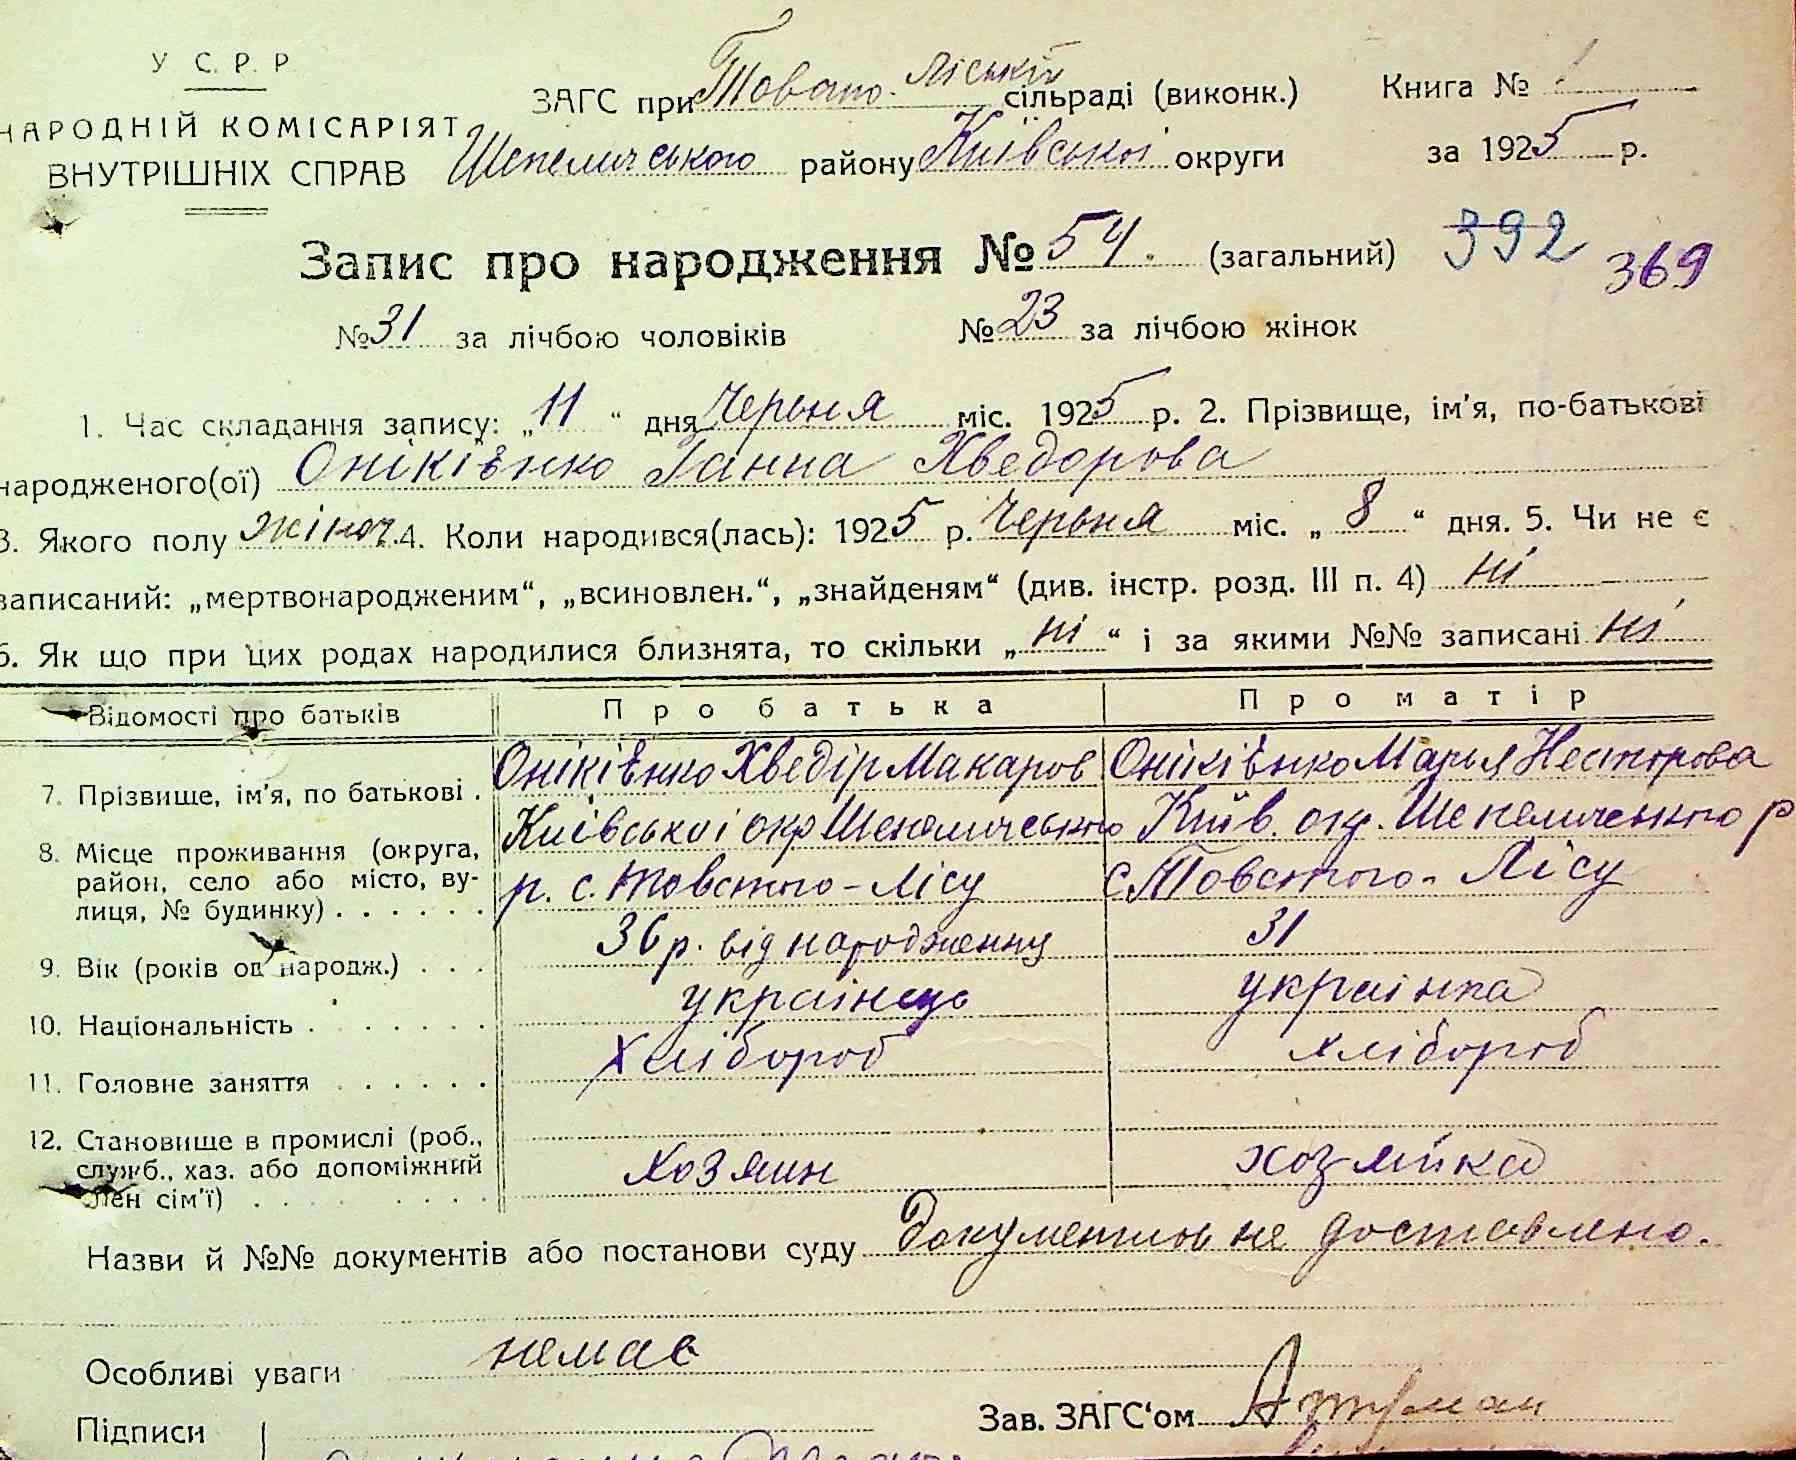 У С. Р. Р.
НАРОДНІЙ КОМІСАРІЯТ
ВНУТРІШНІХ СПРАВ
ЗАГС при Товсто-Ліській сільраді (виконк.)
Шепелицького району Київської округи
Книга №
за 1925 р.
Запис про народження № 54. (загальний) 392 369
№ 31 за лічбою чоловіків № 23 за лічбою жінок
1. Час складання запису: „11“ дня Червня міс. 1925 р. 2. Прізвище, ім'я, по-батькові
народженого(ої) Оніківнко Ганна Хведорова
3. Якого полу жіноч. 4. Коли народився(лась): 1925 р. Червня міс. „8“ дня. 5. Чи не є
записаний: „мертвонародженим“, „всиновлен.“, „знайденям“ (див. інстр. розд. III п. 4) ні
6. Як що при цих родах народилися близнята, то скільки „ні“ і за якими №№ записані ні
Відомості про батьків Про батька Про матір
7. Прізвище, ім'я, по батькові . Оніківнко Хведір Макаров Оніківнко Марья Несторова
8. Місце проживання (округа, район, село або місто, вулиця, № будинку) . . . . . . Київської окр Шепелического р. с. Товстого-Лісу Київ. окр. Шепелического р с. Товстого-Лісу
9. Вік (років од народж.) . . . 36 р. від народження 31
10. Національність . . . . . . . українець українка
11. Головне заняття . . . . . . хлібороб хлібороб
12. Становище в промислі (роб., служб., хаз. або допоміжний член сім'ї) . . . . . . . . . хозяин хозяйка
Назви й №№ документів або постанови суду Документов не доставлено.
Особливі уваги немає
Підписи
Зав. ЗАГС'ом